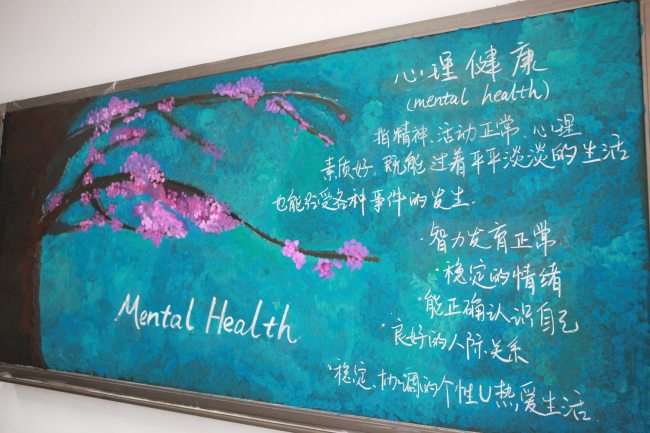 心理健康
(mental health)
指精神、活动正常、心理
素质好。既能过着平平淡淡的生活
也能经受各种事件的发生.
·智力发育正常
·稳定的情绪
·能正确认识自己
·良好的人际关系
·稳定、协调的个性U热爱生活
Mental Health